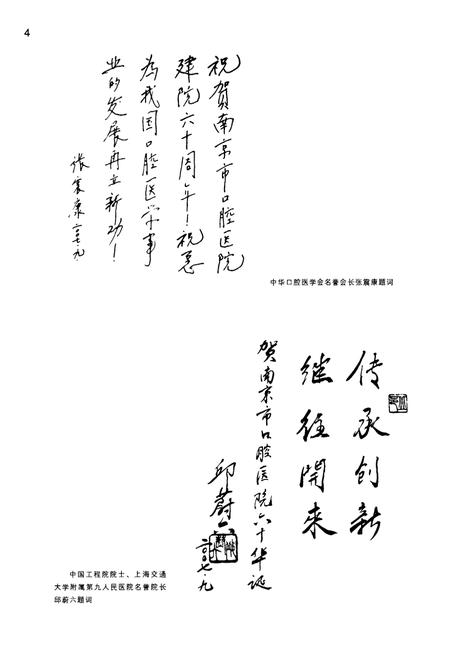 4
祝贺南京市口腔医院
建院六十周年！祝愿
为我国口腔医学事
业的发展再立新功！
张震康 二〇〇七.九.
中华口腔医学会名誉会长张震康题词
传承创新
继往開来
贺南京市口腔医院六十华诞
邱蔚六
二〇〇七.九
中国工程院院士、上海交通
大学附属第九人民医院名誉院长
邱蔚六题词